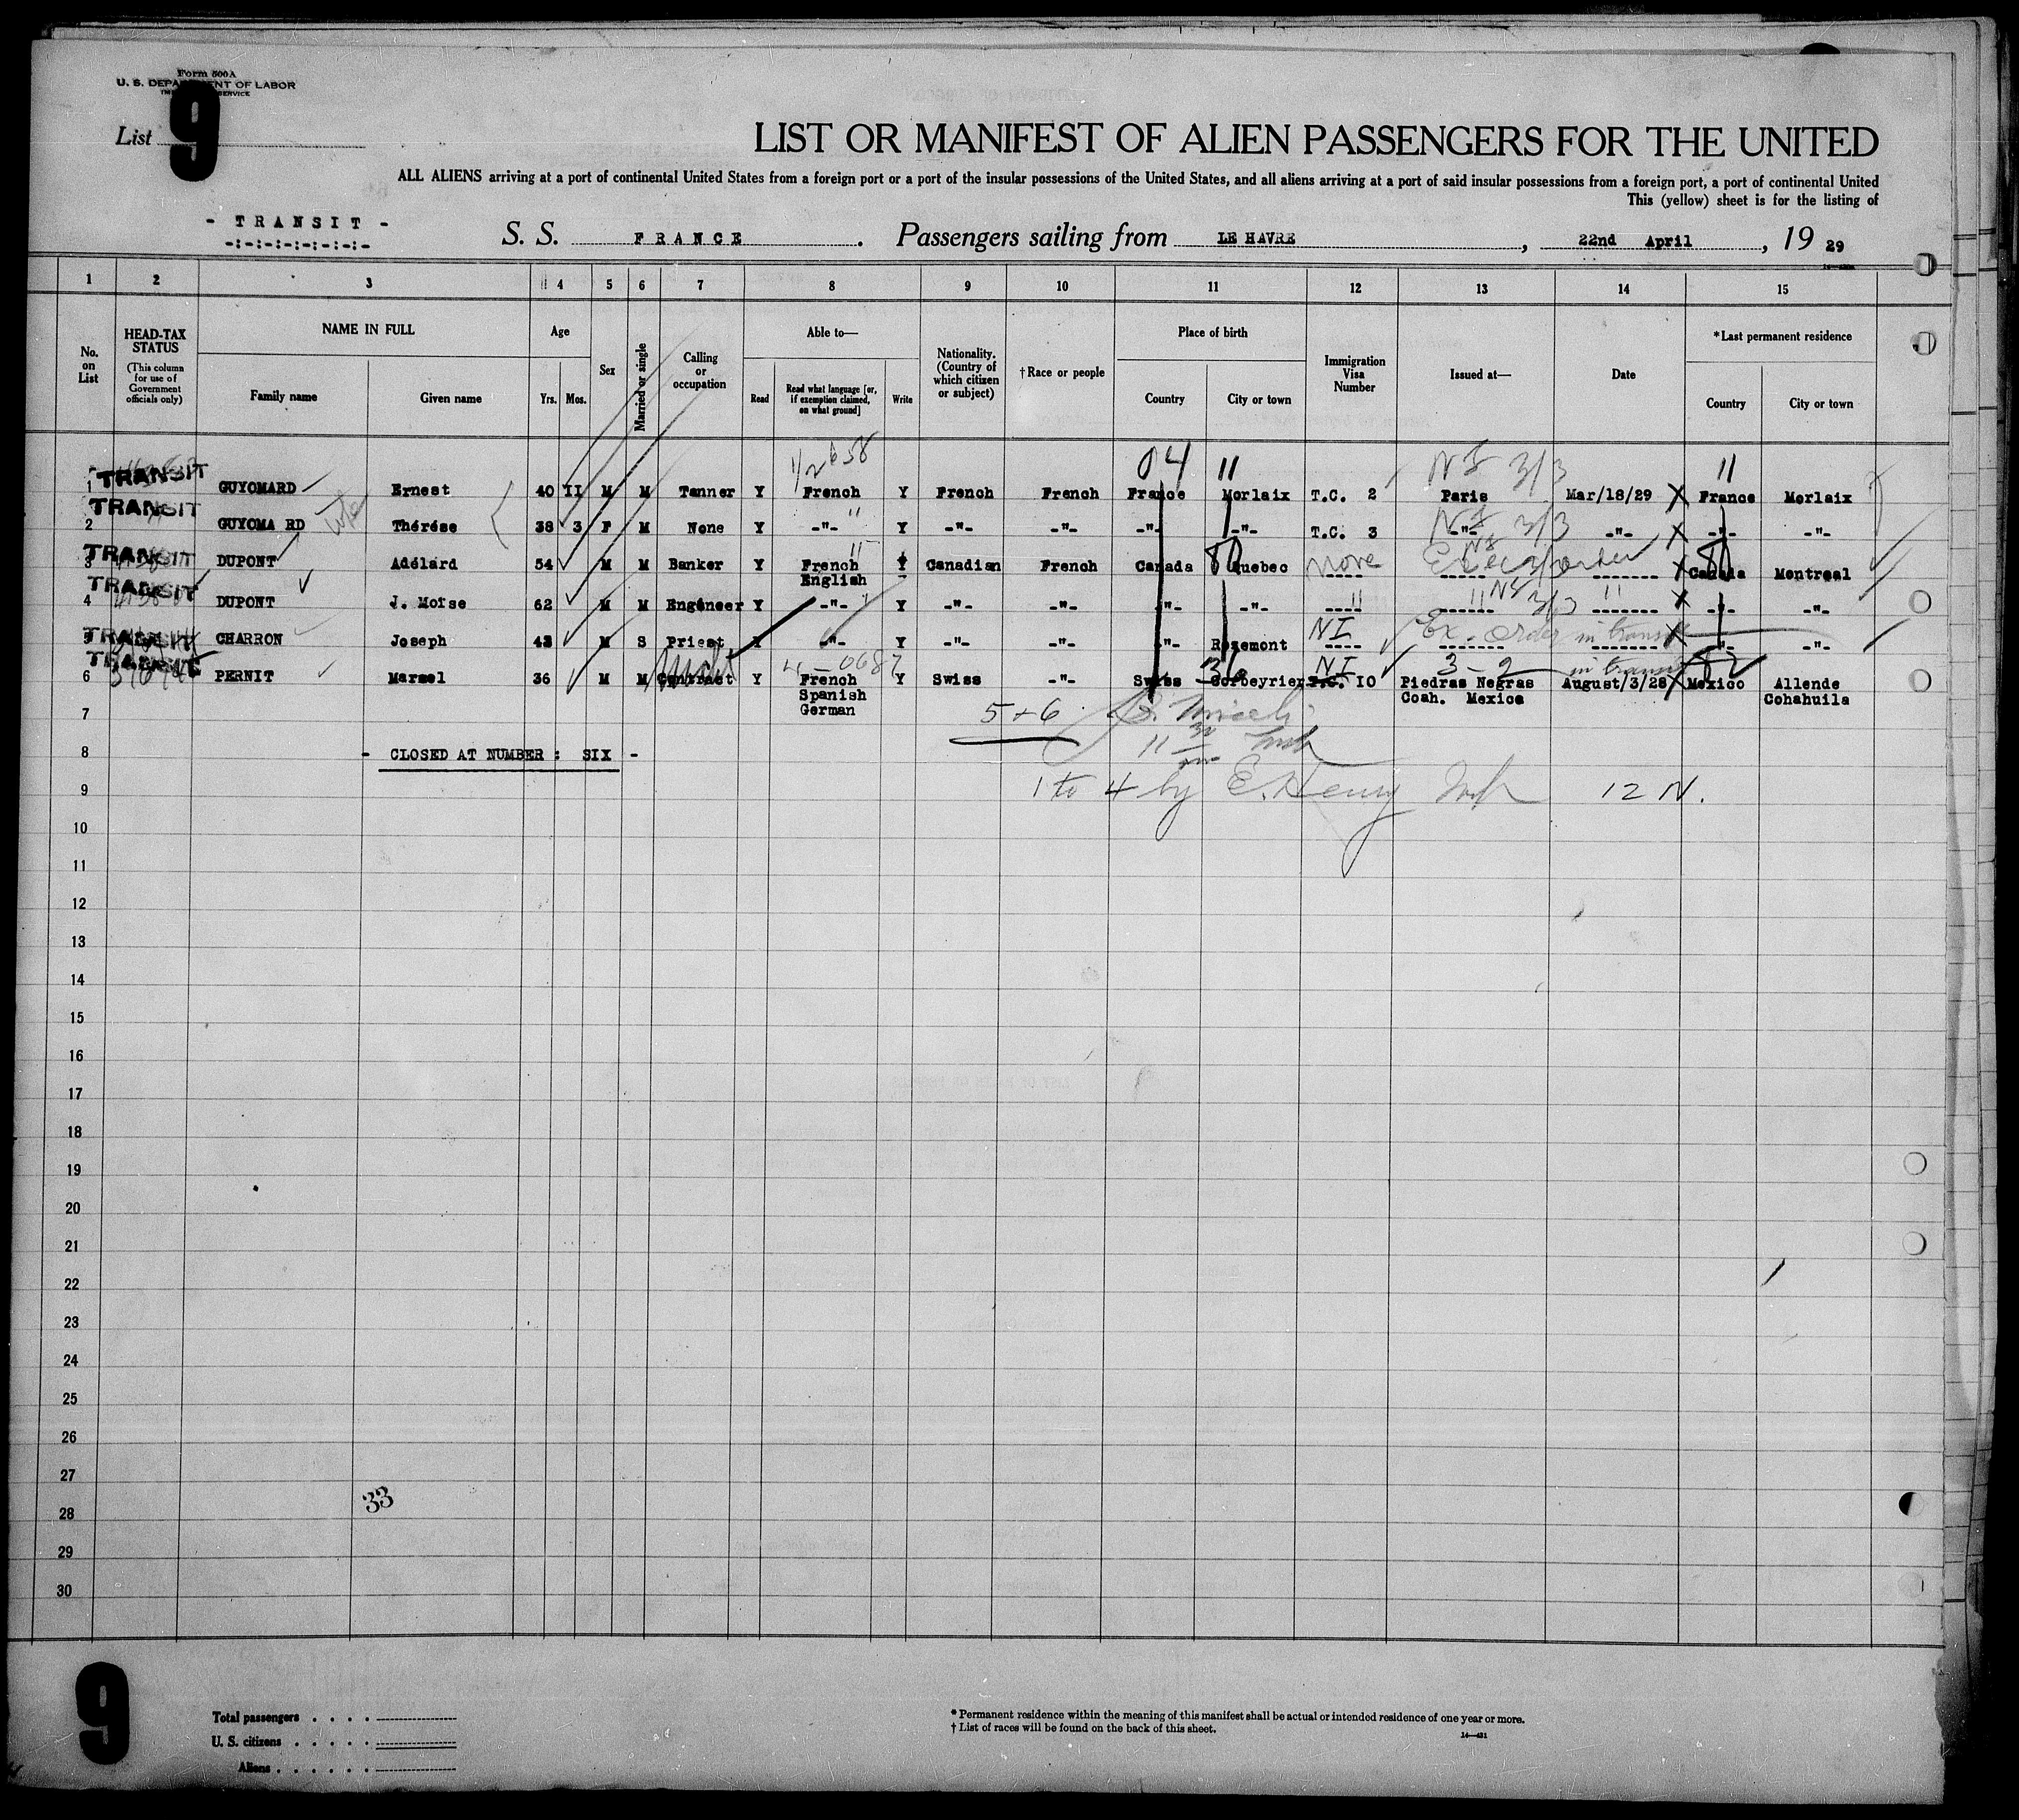 Form 500A
U. S. DEPARTMENT OF LABOR
SERVICE
List 9
LIST OR MANIFEST OF ALIEN PASSENGERS FOR THE UNITED
ALL ALIENS arriving at a port of continental United States from a foreign port or a port of the insular possessions of the United States, and all aliens arriving at a port of said insular possessions from a foreign port, a port of continental United
This (yellow) sheet is for the listing of
- TRANSIT -
-:-:-:-:-:-:-:-
S. S. FRANCE . Passengers sailing from LE HAVRE , 22nd April , 19 29
1 2 3 4 5 6 7 8 9 10 11 12 13 14 15
No. on List
HEAD-TAX STATUS (This column for use of Government officials only)
NAME IN FULL
Family name Given name
Age
Yrs. Mos.
Sex
Married or single
Calling or occupation
Able to—
Read Read what language [or, if exemption claimed, on what ground] Write
Nationality. (Country of which citizen or subject)
†Race or people
Place of birth
Country City or town
Immigration Visa Number
Issued at—
Date
*Last permanent residence
Country City or town
04 11 NI 3/3 11
TRANSIT
1 GUYOMARD Ernest 40 II M M Tanner Y French Y French French France Morlaix T.C. 2 Paris Mar/18/29 X France Morlaix
TRANSIT
NI 3/3
2 GUYOMA RD Thérése 38 3 F M None Y -"- Y -"- -"- -"- -"- T.C. 3 -"- -"- X -"- -"-
TRANSIT
3 DUPONT Adélard 54 M M Banker Y French Y Canadian French Canada Quebec none X Canada Montreal
English
TRANSIT
4 DUPONT J. Moïse 62 M M Engineer Y -"- Y -"- -"- -"- -"- ---- 3/3 X -"- -"-
TRANSIT
NI Ex. order in transit
5 CHARRON Joseph 43 M S Priest Y -"- Y -"- -"- -"- Rosemont ---- X -"- -"-
TRANSIT
NI 3-2 in transit
6 PERNIT Marsel 36 M M Contract Y French Y Swiss -"- Swiss Corbeyrier T.C. 10 Piedras Negras August/3/28 X Mexico Allende
Spanish Coah. Mexico Cohahuila
7 German
5+6
8 - CLOSED AT NUMBER : SIX -
9 1 to 4 by E. Henry Insp 12 N.
10
11
12
13
14
15
16
17
18
19
20
21
22
23
24
25
26
27
33
28
29
30
9
Total passengers . . . .
U. S. citizens . . . . .
Aliens . . . . . .
* Permanent residence within the meaning of this manifest shall be actual or intended residence of one year or more.
† List of races will be found on the back of this sheet.
14—421